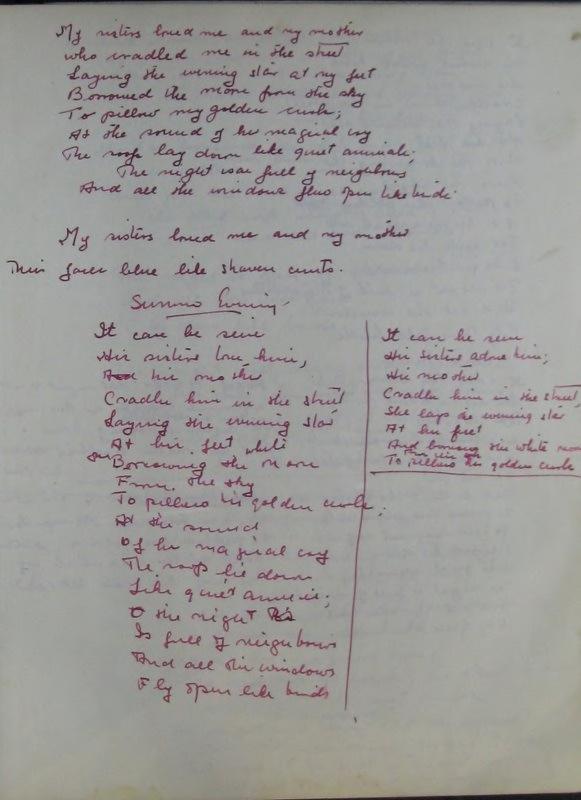 My sisters loved me and my mother
who cradled me in the street
Laying the evening star at my feet
Borrowed the moon from the sky
To pillow my golden curls;
At the sound of her magical cry
The roofs lay down like quiet animals;
The night was full of neighbours
And all the windows flew open like birds.
My sisters loved me and my mother
Their faces blue like shaven
Summer Evening
It can be seen
His sisters love him,
And his mother
Cradles him in the street
Laying the evening star
At his feet
white
Borrowing the moon
From the sky
To pillow his golden curls;
At the sound
Of her magical cry
The roofs lie down
Like quiet animals;
O the night
Is full of neighbours
And all the windows
Fly open like birds
It can be seen
His sisters adore him;
His mother
Cradles him in the street
She lays the evening star
At his feet
And borrows the white moon
To pillow his golden curls